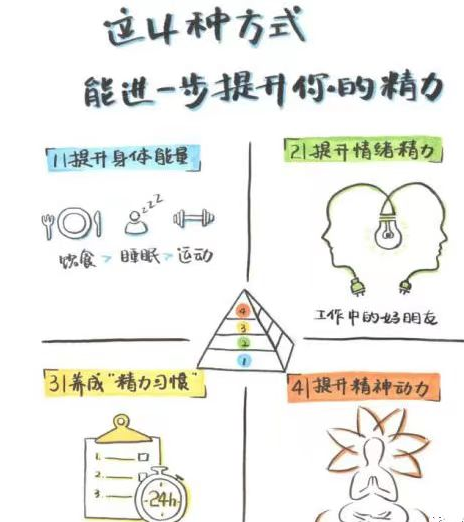 这4种方式
能进一步提升你的精力
1|提升身体能量
zzz
饮食 > 睡眠 > 运动
2|提升情绪精力
工作中的好朋友
4
3
2
1
3|养成"精力习惯"
1.
2.
3.
24h
4|提升精神动力